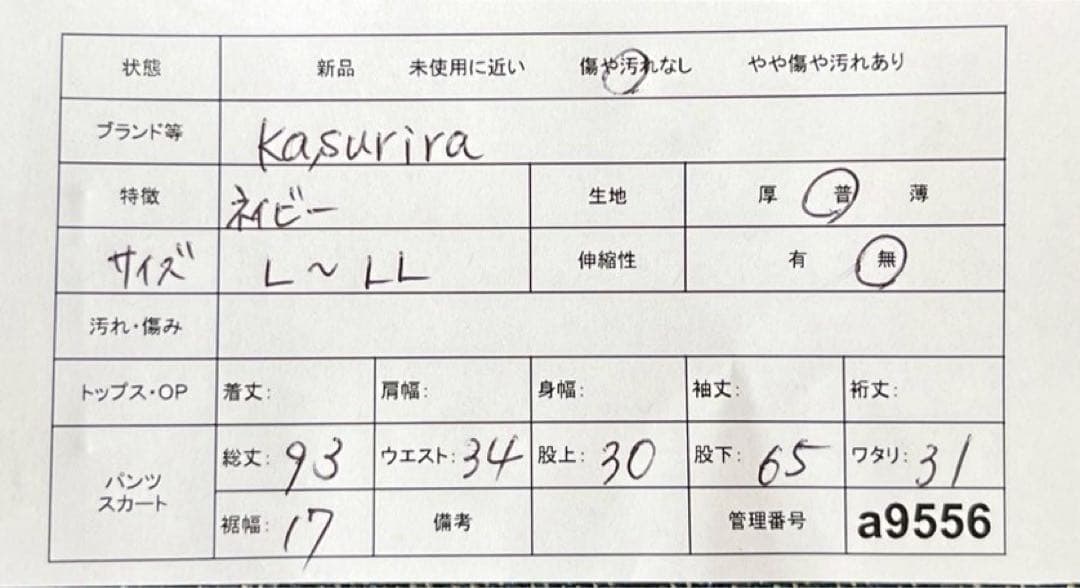 状態 新品 未使用に近い 傷や汚れなし やや傷や汚れあり
ブランド等 kasurira
特徴 ネイビー 生地 厚 普 薄
サイズ L～LL 伸縮性 有 無
汚れ・傷み
トップス・OP 着丈: 肩幅: 身幅: 袖丈: 裄丈:
パンツ スカート 総丈: 93 ウエスト: 34 股上: 30 股下: 65 ワタリ: 31
裾幅: 17 備考 管理番号 a9556